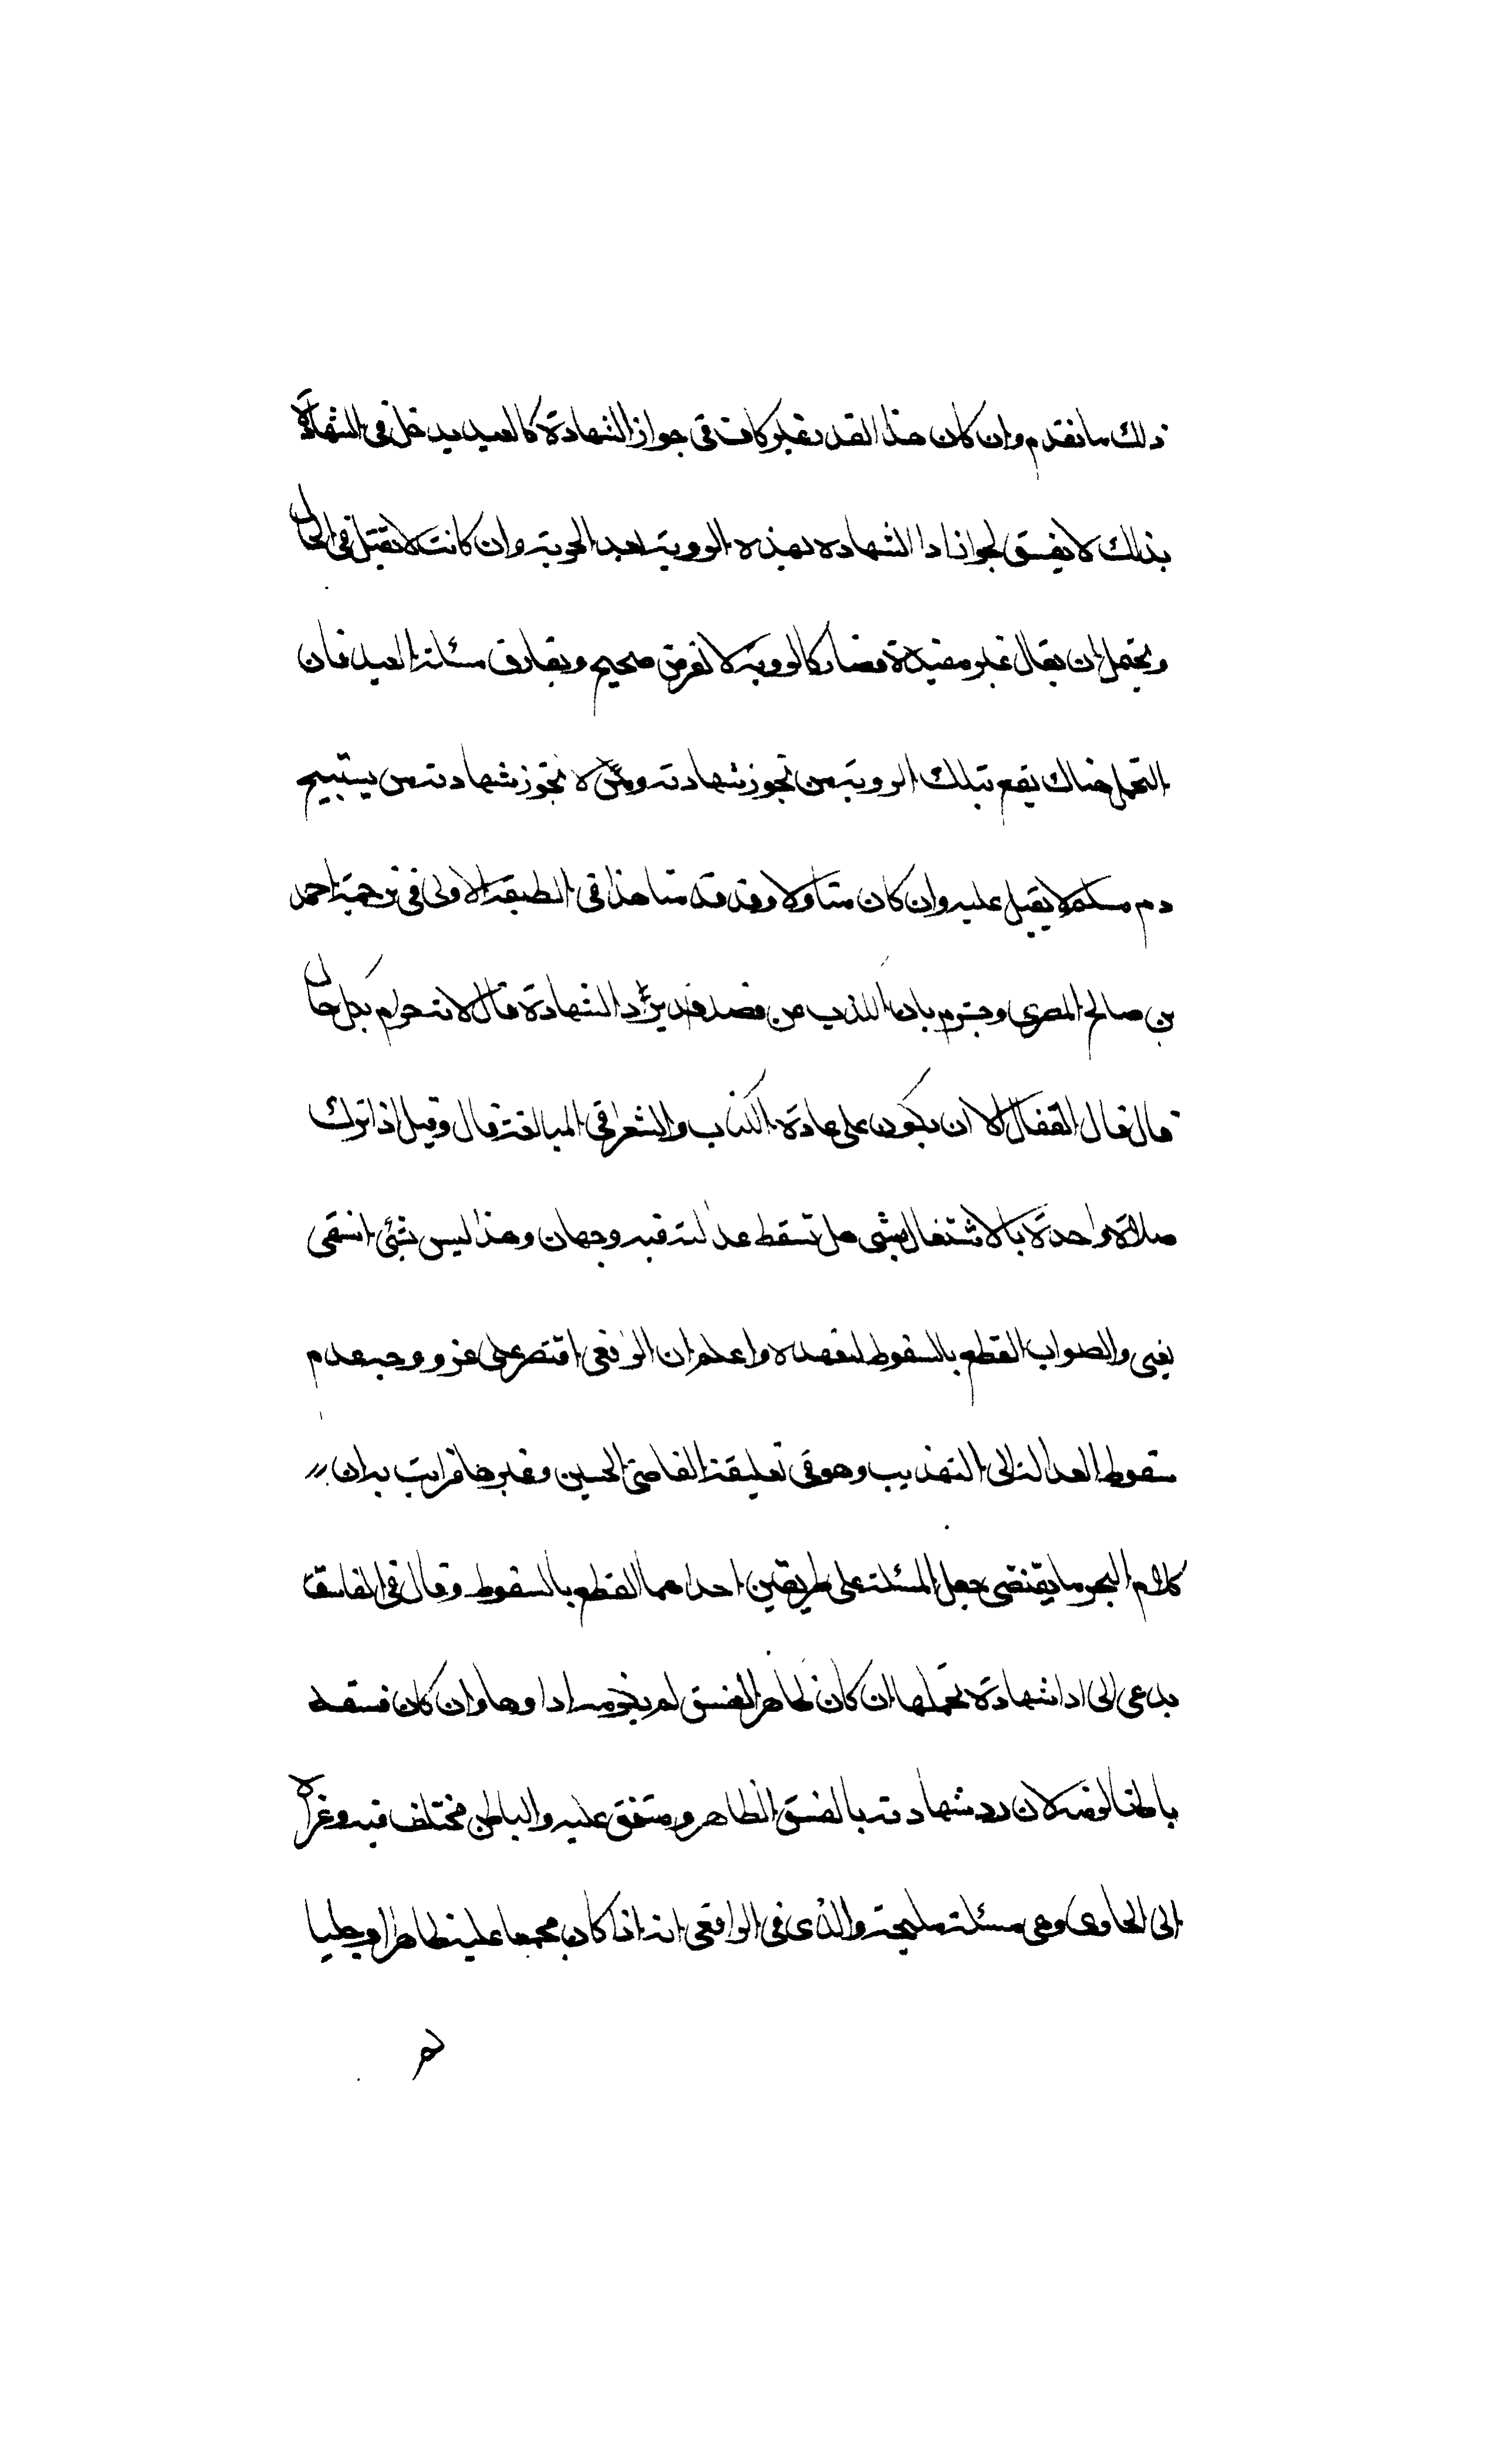 ذلك ما تقدم وان كان هذا القدر غير كاف فى جواز الشهادة كالعبد يدخل فى الشهادة
بذلك لا يفسق لجواز ادا الشهاده بهذه الروية بعد الحرية وان كانت لا تقبل فى الحال
ويحتمل ان يقال غير مفيدة فصار كالروية لا لغرض صحيح ويفارق مسئلة العبد فان
التحمل هناك يقع بتلك الروية من تجوز شهادته وممن لا تجوز شهادته من يستبيح
دم مسلم لا يقبل عليه وان كان متاولا وقد قدمنا هذا فى الطبقة الاولى فى ترجمة احمد
بن صالح المصرى وجزم بان الكذب عن قصد قد يرد الشهادة قال لانه حرام بكل حال
قال قال القفال الا ان يكون على عادة الكتاب والشعرا فى المبالغة قال وقيل اذا ترك
صلاة واحدة بالاشتغال بشى هل تسقط عدالته فيه وجهان وهذا ليس بشئ انتهى
يعنى والصواب القطع بالسقوط لتعمده واعلم ان الرافعى اقتصر على عزو وجه عدم
سقوط العدالة الى التهذيب وهو فى تعليقة القاضى الحسين وغيرها فرايت بدان
كلام البحر ما يقتضى جعل المسئلة على طريقين احداهما القطع بالسقوط وقال فى الفاسق
يدعى الى ادا شهادة تحملها ان كان ظاهر الفسق لم يلزمه اداوها وان كان فسقه
باطنا لزمه لان رد شهادته بالفسق الظاهر متفق عليه والباطن مختلف فيه وعزاه
الى الحاوى وهى مسئلة مليحة والذى فى الرافعى انه اذا كان مجمعا عليه ظاهرا وجليا